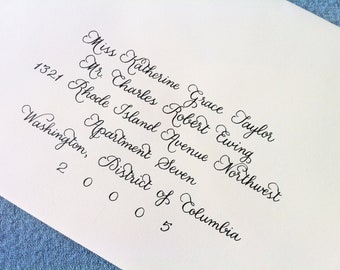 Miss Katherine Grace Taylor
Mr. Charles Robert Ewing
1321 Rhode Island Avenue Northwest
Apartment Seven
Washington, District of Columbia
2 0 0 0 5